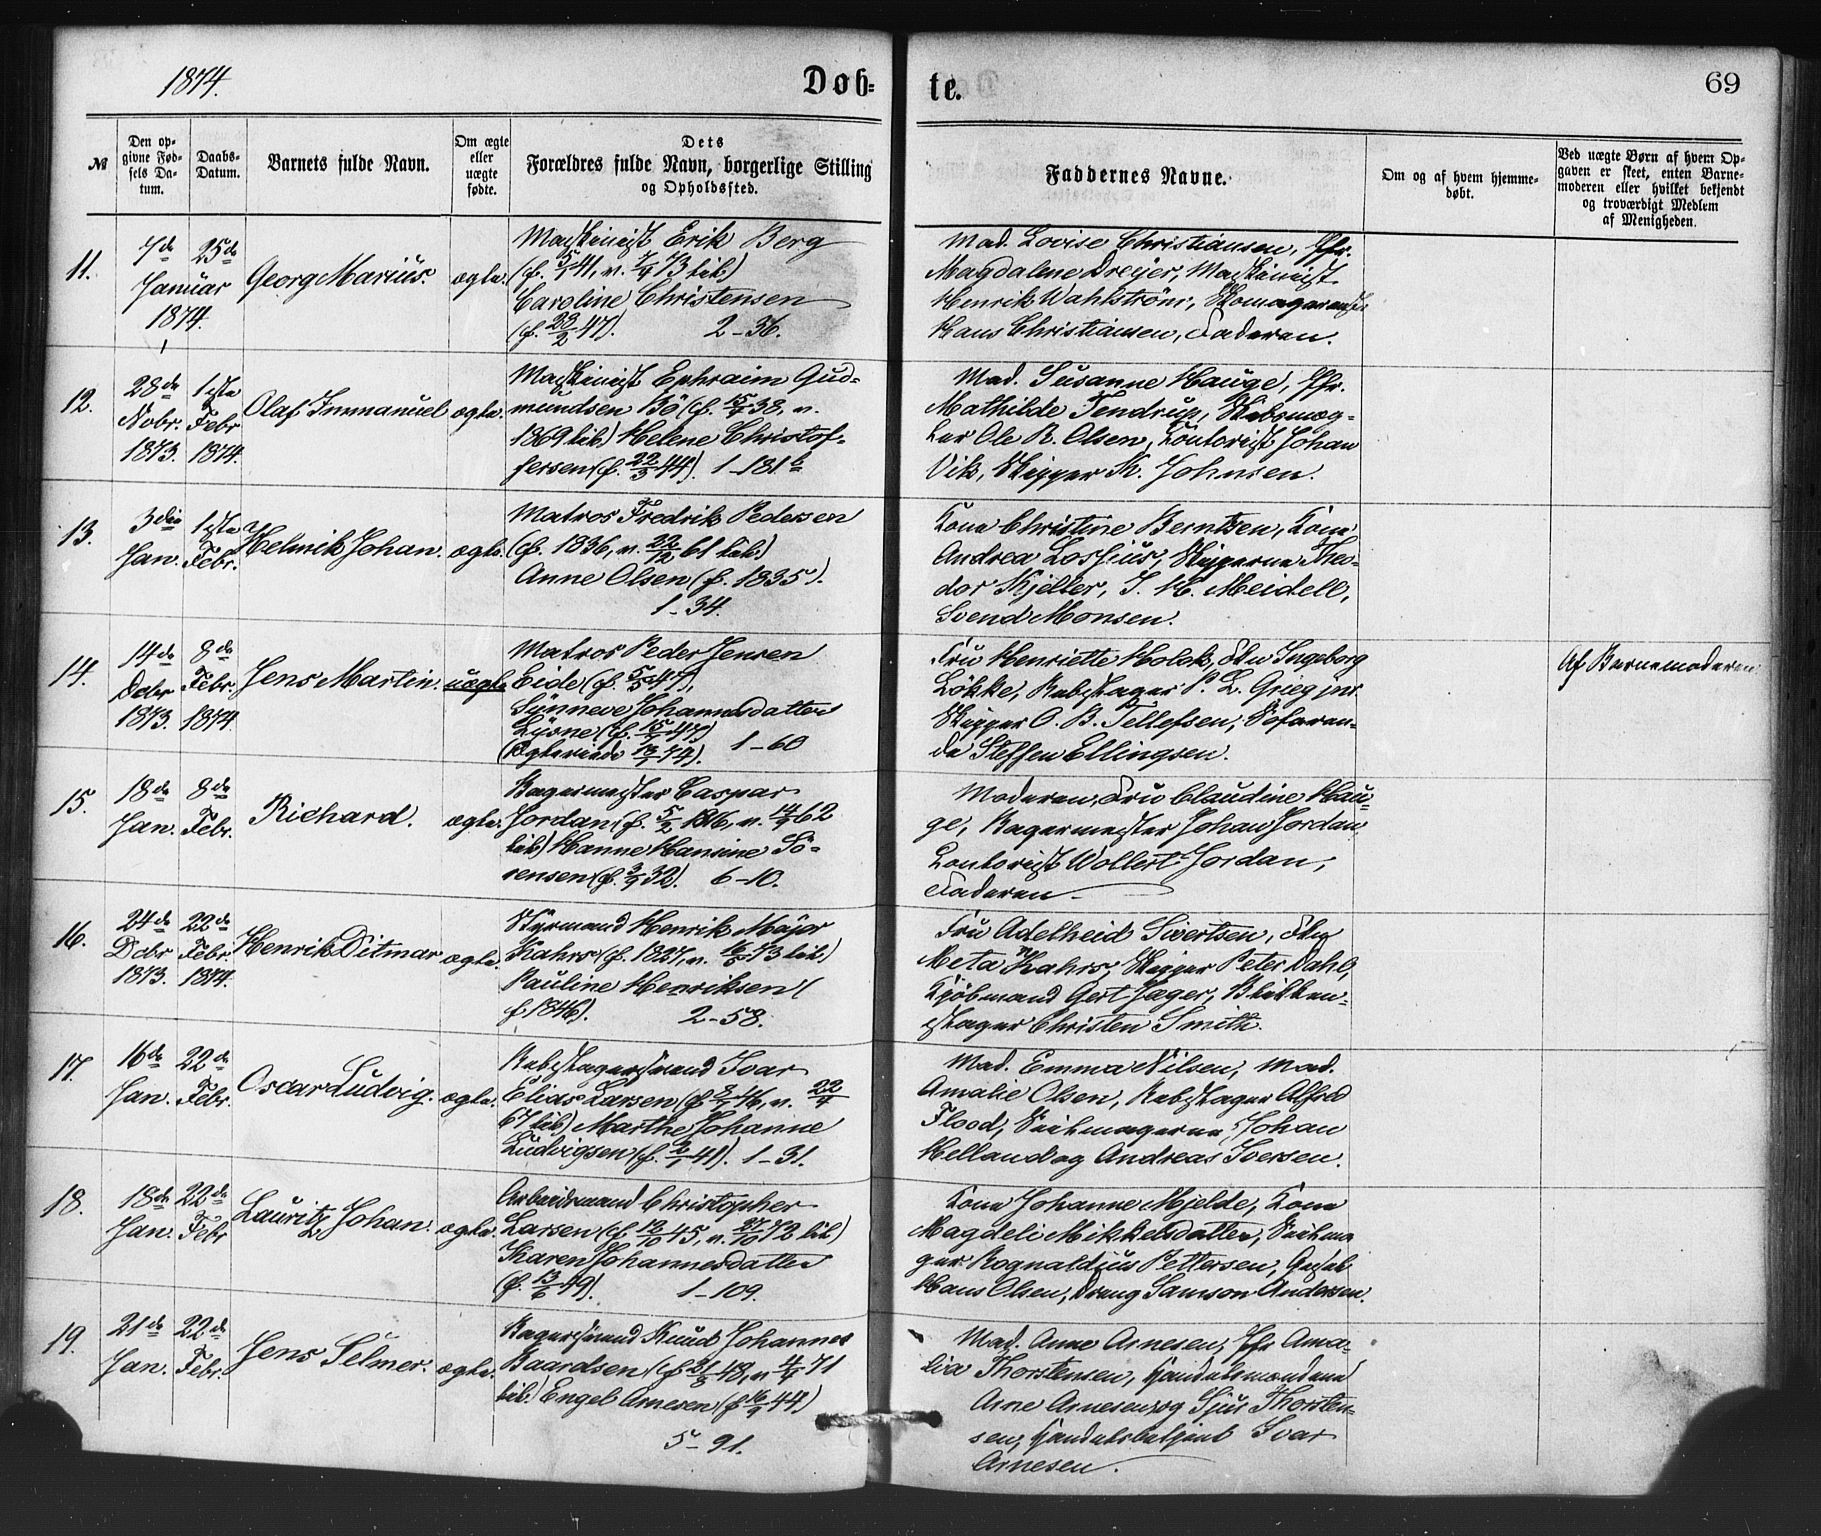 1874.
Døb=
te.
69
№
Den op-
givne Fød-
sels Da-
tum.
Daabs-
Datum.
Barnets fulde Navn.
Om ægte
eller
uægte
fødte.
Dets
Forældres fulde Navn, borgerlige Stilling
og Opholdssted.
Faddernes Navne.
Om og af hvem hjemme-
døbt.
Ved uægte Børn af hvem Op-
gaven er skeet, enten Barne-
moderen eller hvilket bekjendt
og troværdigt Medlem
af Menigheden.
11.
7de
Januar
1874.
25de
Georg Marius.
ægte.
Maskinist Erik Berg
(f. 5/1 41, v. 1/9 73 lib)
Caroline Christensen
(f. 23/2 47). 2-36.
Mad. Lovise Christiansen, Jfr.
Magdalene Dreyer, Maskinist
Henrik Wahlstrøm, Skomagersvend
Hans Christiansen, Faderen.
12.
28de
Novbr.
1873.
1ste
Febr
1874.
Olaf Immanuel
ægte.
Maskinist Ephraim Gud=
mundsen Bö (f. 15/9 38, v.
1869 lib) Helene Christof-
fersen (f. 22/3 44). 1-181b
Mad. Susanne Hauge, Jfr.
Mathilde Tendrup, Skibsmæg=
ler Ole R. Olsen, Contorist Johan
Vik, Skipper K. Johnsen.
13.
3die
Jan.
1ste
Febr.
Helmik Johan.
ægte.
Matros Fredrik Pedersen
(f. 1836, v. 22/12 61 lib.)
Anne Olsen (f. 1835).
1-34.
Kone Christine Berntsen, Kone
Andrea Lossius, Skipperne Theo-
dor Kjeller, J. H. Meidell,
Svend Monsen.
14.
14de
Debr
1873.
8de
Febr.
1874.
Jens Martin.
uægte
Matros Peder Jensen
Eide (f. 5/5 47),
Sünneve Johannesdatter
Lysne (f. 15/7 47)
(Ægteviede 13/1 74). 1-60
Fru Henriette Holck, Fkn Ingeborg
Løkke, Rebslager P. L. Grieg jnr.
Skipper O. B. Tellefsen, Søfaren-
de Steffen Ellingsen.
Af Barnemoderen
15.
18de
Jan.
8de
Febr.
Richard.
ægte.
Bagermester Caspar
Jordan (f. 5/2 1816, v. 14/9 62
lib) Hanne Hansine Sö-
rensen (f. 3/9 32). 6-10.
Moderen, Fru Claudine Hau=
ge, Bagermester Johan Jordan,
Contorist Wollert Jordan,
Faderen
16.
24de
Dcbr
1873.
22de
Febr.
1874.
Henrik Ditmar
ægte.
Styrmand Henrik Majer
Kahrs (f. 1827, v. 16/5 73 lib)
Pauline Henriksen (
f. 1846). 2-58.
Fru Adelheid Sivertsen,
Meta Kahrs, Skipper Peter Dahl,
Kjöbmand Gert Jæger, Blikken=
slager Christen Smith.
17.
16de
Jan.
22de
Febr.
Oscar Ludvig.
ægte.
Rebslagersvend Ivar
Elias Larsen (f. 2/7 46, v. 22/4
67 lib) Marthe Johanne
Ludvigsen (f. 2/1 41). 1-31.
Mad. Emma Nilsen, Mad.
Amalie Olsen, Rebslager Alfred
Flood, Seilmagerne Johan
Helland og Andreas Iversen.
18.
18de
Jan.
22de
Febr
Lauritz Johan.
ægte.
Arbeidsmand Christopher
Larsen (f. 12/10 45, v. 27/10 72 lib)
Karen Johannesdatter
(f. 13/6 49). 1-109.
Kone Johanne Mjelde, Kone
Magdeli Mikkelsdatter, Seilma
ger Rognaldius Pettersen,
Hans Olsen, Dreng Samson Andersen.
19.
21de
Jan.
22de
Febr.
Jens Selmer.
ægte.
Bagersvend Knud Johannes
Baardsen (f. 21/3 48, v. 4/7 71
lib.) Engel Arnesen (f. 16/9 44)
5-91.
Mad. Anne Arnesen, Jfr Ama-
lia Thorstensen, Handelsmændene
Arne Arnesen og Sjur Thorsten=
sen, Handelsbetjent Ivar
Arnesen.